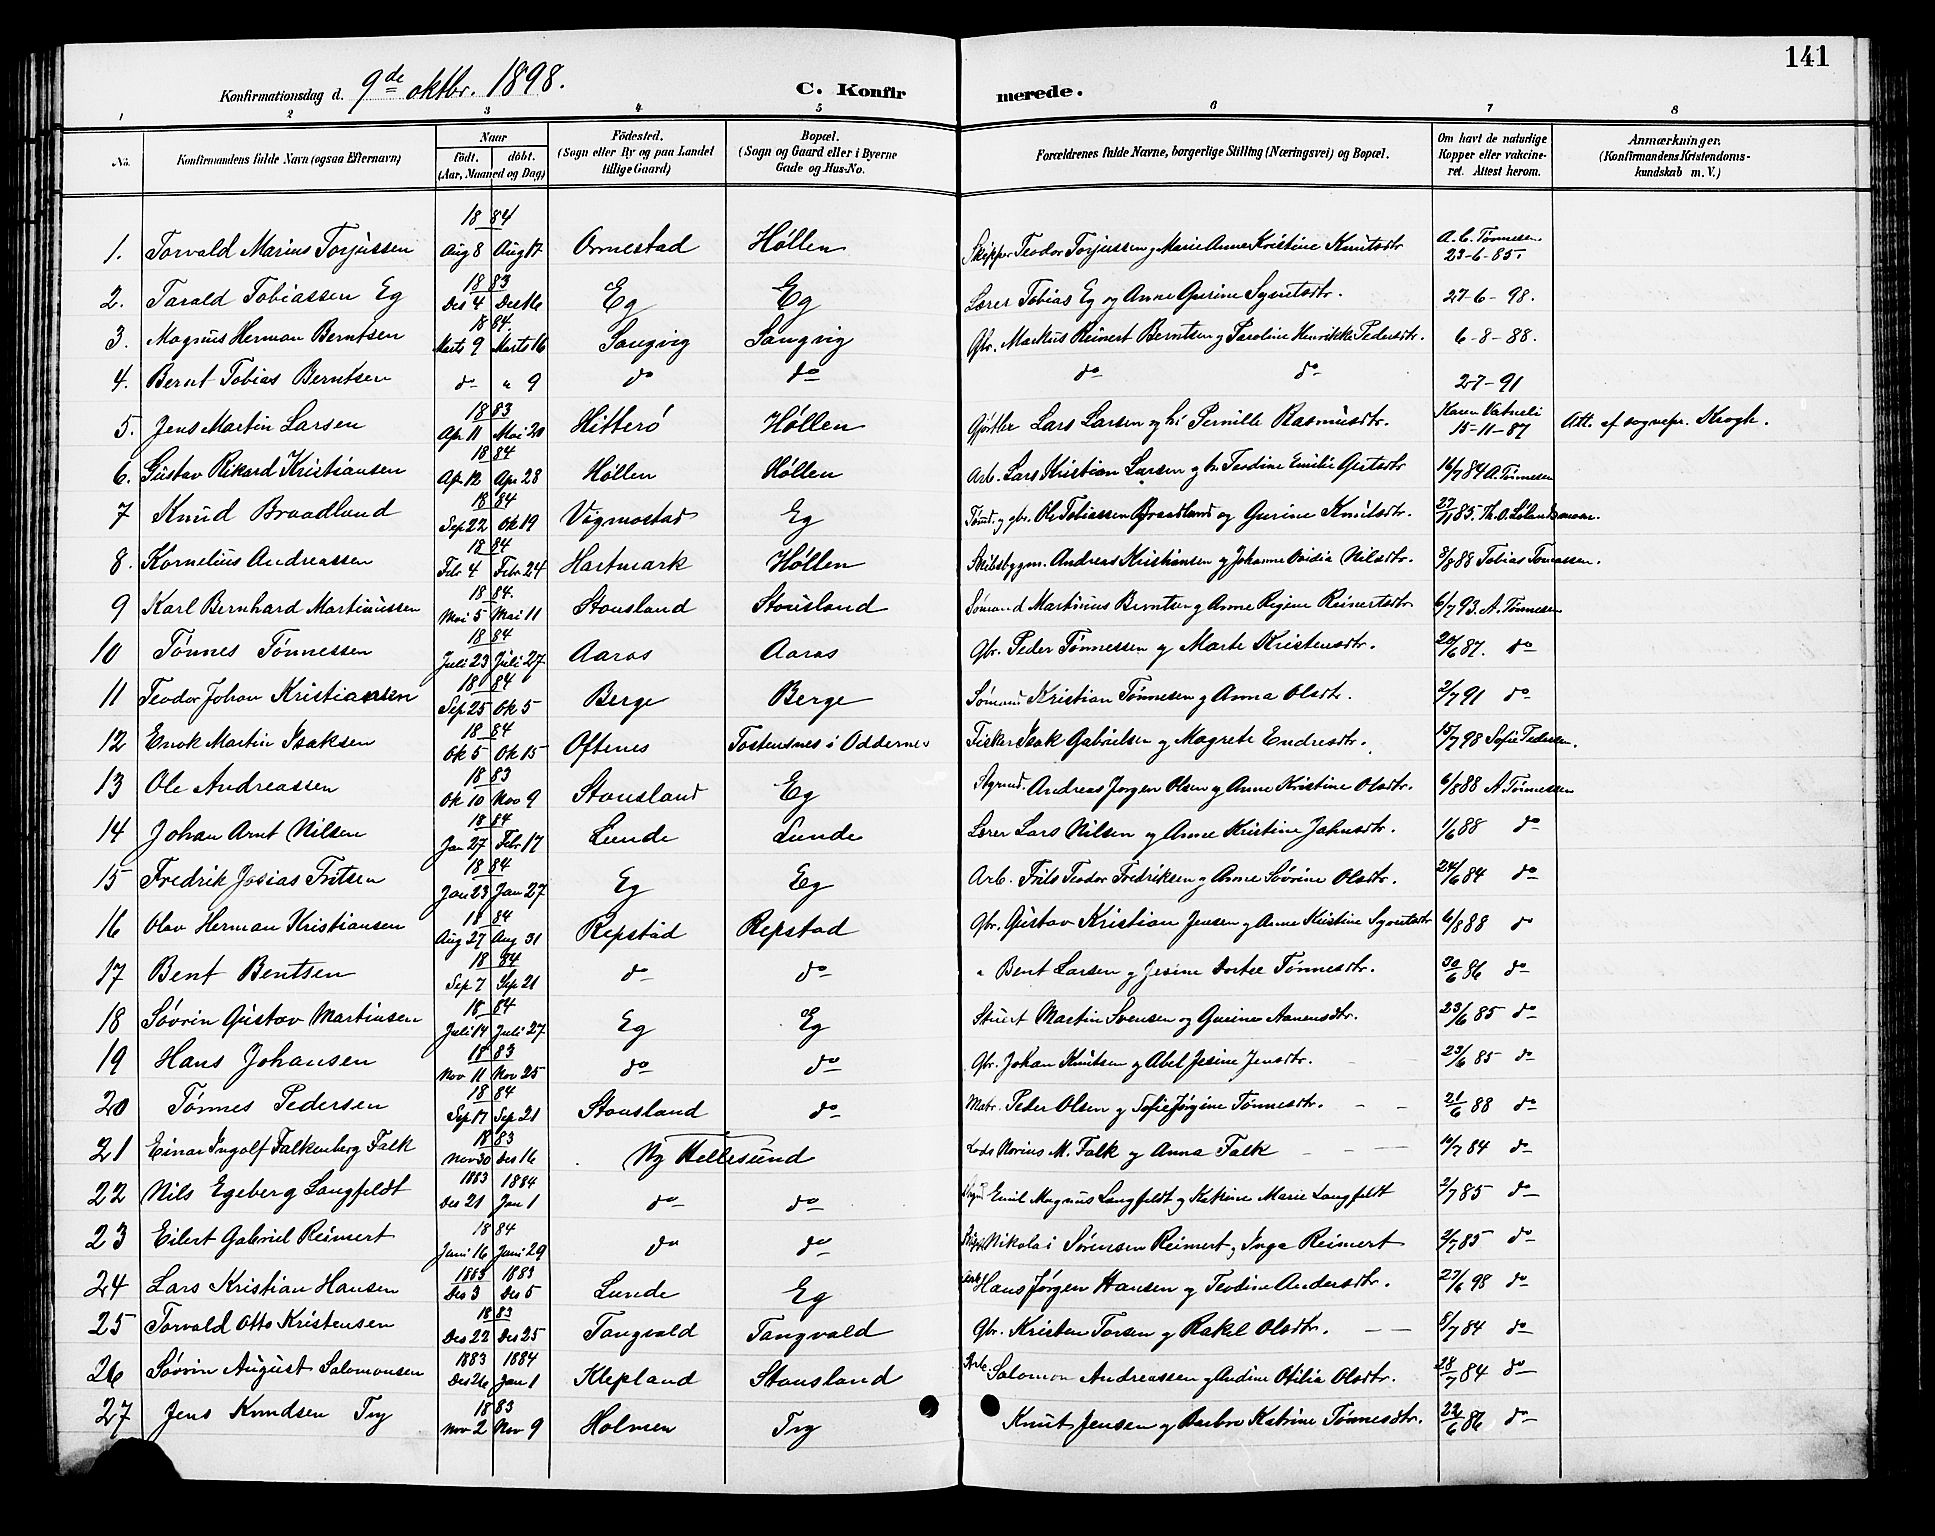 141
Konfirmationsdag d. 9de oktbr. 1898. C. Konfirmerede.
1 2 3 4 5 6 7 8
No. Konfirmandens fulde Navn (ogsaa Efternavn) Naar födt. döbt. (Aar, Maaned og Dag) Födested. (Sogn eller By og paa Landet tillige Gaard) Bopæl. (Sogn og Gaard eller i Byerne Gade og Hus-No. Forældrenes fulde Navne, borgerlige Stilling (Næringsvei) og Bopæl. Om havt de naturlige Kopper eller vakcineret. Attest herom. Anmærkninger. (Konfirmandens Kristendomskundskab m. V.)
1884
1. Torvald Marius Torjussen Aug 8 Aug 17 Ormestad Høllen Skipper Teodor Torjussen og Marie Anne Kristine Knutsdtr A. C. Tønnesen 23-6-85.
1883
2. Tarald Tobiassen Eg Des 4 Des 16 Eg Eg Lærer Tobias Eg og Anne Gurine Syvertsdtr. 27-6-98.
1884.
3. Magnus Herman Berntsen Marts 9 Marts 16 Sangvig Sangvig Gbr. Markus Reinert Berntsen og Karoline Henrikke Pedersdtr. 6-8-88.
4. Bernt Tobias Berntsen do " 9 do do do do 2-7-91
1883
5. Jens Martin Larsen Apr 11 Mai 20 Hitterø Høllen Gjørtler Lars Larsen og h. Pernille Rasmusdtr. Karen Vatneli 15-11-87 Att. af sognepr. Krogh.
1884
6. Gustav Rikard Kristiansen Apr 12 Apr 28 Høllen Høllen Arb. Lars Kristian Larsen og h. Teodine Emilie Gustsdtr 16/7 84 A. Tønnesen
1884
7 Knud Braadland Sep 22 Ok 19 Vigmostad Eg Tømd. og gbr. Ole Tobiassen Braadland og Gurine Knutsdtr. 27/11 85. Th. O. Lølandsmoen.
1884
8. Kornelius Andreassen Febr 4 Febr 24 Hartmark Høllen Skibsbygm. Andreas Kristiansen og Johanne Ovidia Nilsdtr. 3/8 88 Tobias Tomassen.
1884.
9 Karl Bernhard Martinussen Mai 5 Mai 11 Stousland Stousland Sømand Martinius Berntsen og Anne Regine Reinertsdtr 6/7 93. A. Tønnesen
1884
10 Tønnes Tønnessen Juli 23 Juli 27 Aaros Aaros Gbr. Peder Tønnessen og Marte Kristensdtr. 20/6 87. do
1884
11 Teodor Johan Kristiansen Sep 25 Ok 5 Berge Berge Sømand Kristian Tønnesen og Anna Olsdtr. 2/7 91 do
1884
12 Enok Martin Isaksen Ok 5 Ok 15 Oftenes Tostensnes i Oddernes Fisker Isak Gabrielsen og Magrete Endresdtr. 15/7 98 Sofie Pedersen.
1883
13 Ole Andreassen Ok 10 Nov 9 Stousland Eg Styrmd. Andreas Jørgen Olsen og Anne Kristine Olsdtr. 6/8 88 A. Tønnessen
1884
14 Johan Arnt Nilsen Jan 27 Febr 17 Lunde Lunde Lærer Lars Nilsen og Anne Kristine Jahnsdtr. 1/6 88 do
1884
15 Fredrik Josias Fritsen Jan 23 Jan 27 Eg Eg Arb. Frits Teodor Fredriksen og Anne Søvrine Olsdtr. 24/6 84 do
1884
16 Olav Herman Kristiansen Aug 27 Aug 31 Repstad Repstad Gbr. Gustav Kristian Jensen og Anne Kristine Syvertsdtr 6/8 88 do
1884
17 Bent Bentsen Sep 7 Sep 21 do do " Bent Larsen og Jesine Dortee Tønnesdtr. 30/6 86 do
1884
18 Søvrin Gustav Martinsen Juli 14 Juli 27 Eg Eg Stuert Martin Svensen og Gurine Aanensdtr. 23/6 85 do
1883
19 Hans Johansen Nov 11 Nov 25 do do Gbr. Johan Knutsen og Abel Jesine Jensdtr. 23/6 85 do
1884
20 Tønnes Pedersen Sep 17 Sep 21 Stousland do Matr. Peder Olsen og Sofie Jørgine Tønnesdtr. 21/6 88 do
1883
21 Einar Ingolf Falkenberg Falk Nov 30 Des 16 Ny Hellesund Lods Norius M. Falk og Anna Falk 10/7 84 do
1883 1884
22 Nils Egeberg Langfeldt Des 21 Jan 1 do do Emil Magnus Langfeldt og Katrine Marie Langfeldt 2/7 85 do
1884
23 Eilert Gabriel Reimert Juni 16 Juni 29 do do Skipp. Nikolai Sørensen Reimert og Inga Reimert 2/7 85 do
1883 1883
24 Lars Kristian Hansen Des 3 Des 5 Lunde Eg Arb. Hans Jørgen Hansen og Teodine Andersdtr. 27/6 98 do
1883
25 Torvald Otto Kristensen Des 22 Des 25 Tangvald Tangvald Gbr. Kristen Torsen og Rakel Olsdtr. 8/7 84 do
1883 1884
26 Søvrin August Salomonsen Des 26 Jan 1 Klepland Stousland Arb. Salomon Andreassen og Andine Otilie Olsdtr. 28/7 84 do
1883
27 Jens Knudsen Try Nov 2 Nov 9 Holmen Try Knut Jensen og Barbro Katrine Tønnesdtr. 22/6 86 do